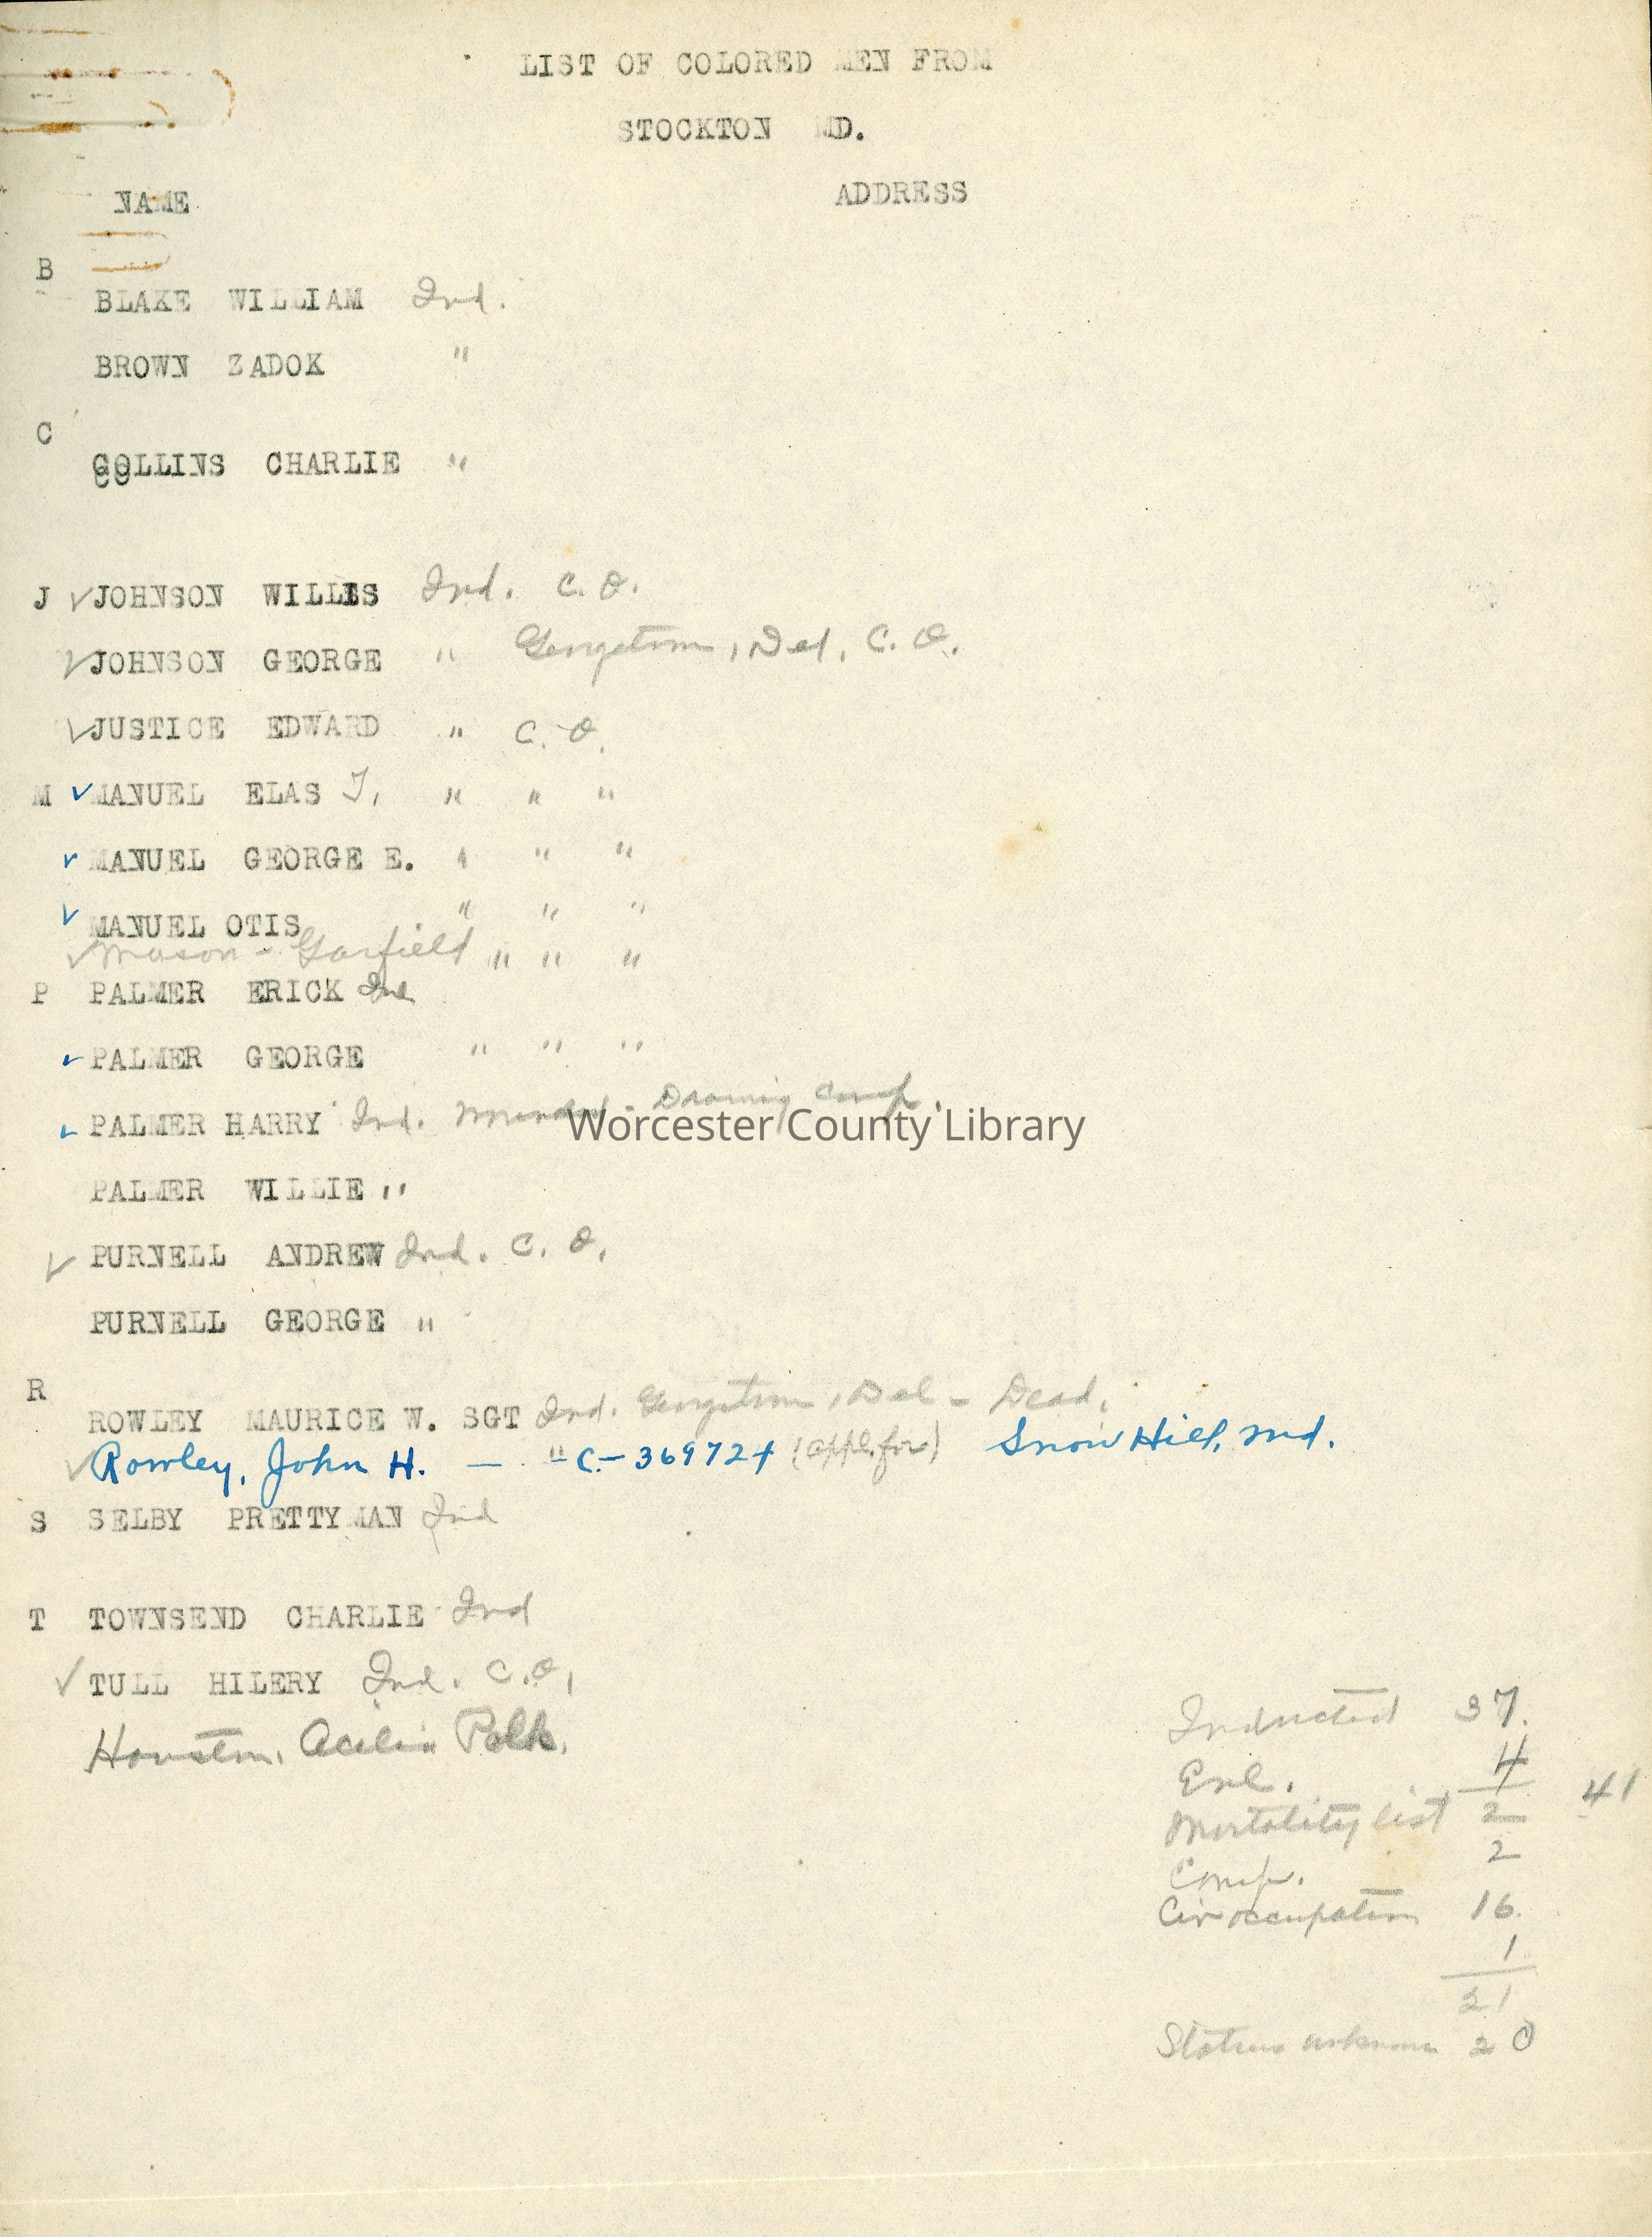 LIST OF COLORED MEN FROM
STOCKTON MD.
NAME ADDRESS
B
BLAKE WILLIAM Ind.
BROWN ZADOK "
C
COLLINS CHARLIE "
J ✓JOHNSON WILLIS Ind. C. O.
✓JOHNSON GEORGE " Georgetown, Del, C. O.
✓JUSTICE EDWARD " C. O.
M ✓MANUEL ELAS J. " " "
✓MANUEL GEORGE E. " " "
✓MANUEL OTIS " " "
✓Mason - Garfield " " "
P PALMER ERICK Ind
✓PALMER GEORGE " " "
✓PALMER HARRY Ind. Drawing Comp.
Worcester County Library
PALMER WILLIE "
✓PURNELL ANDREW Ind. C. O.
PURNELL GEORGE "
R
ROWLEY MAURICE W. SGT Ind. Georgetown, Del - Dead.
✓Rowley, John H. — " C-369724 (appl. for) Snow Hill, Md.
S SELBY PRETTYMAN Ind
T TOWNSEND CHARLIE Ind
✓TULL HILERY Ind. C. O.
Houston, Polk.
Inducted 37.
Enl. 4 41
Mortality list 2
Comp. 2
Civ occupation 16.
1
21
Status unknown 20